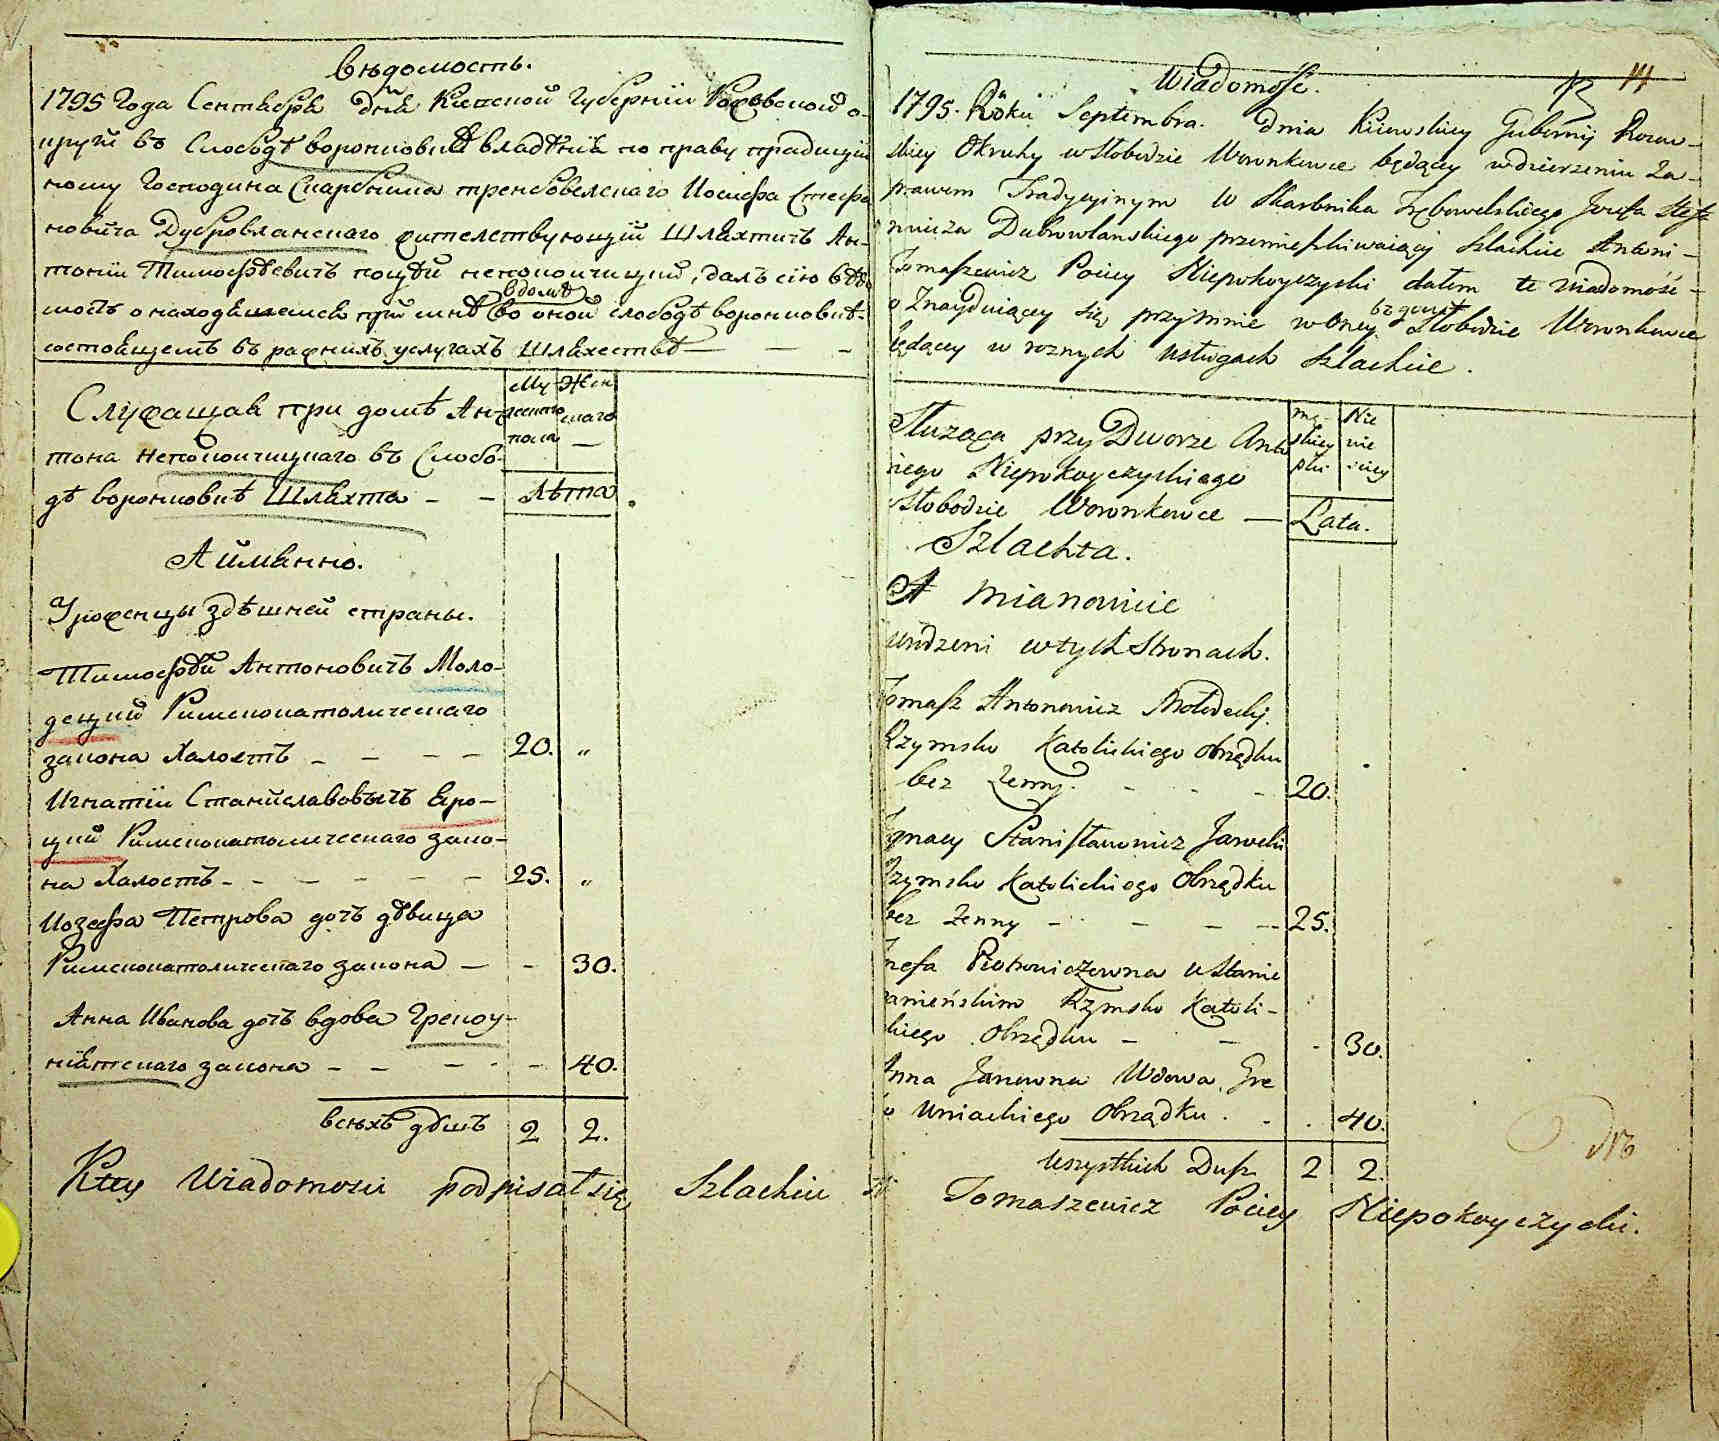 Вѣдомость.
1795 Года Сентября дня Кіевской Губерніи Роховской о-
круги въ Слободѣ Воронковкѣ владѣнія по праву традицій
ному Господина Скарбника трембовелскаго Иосифа Стефа
новича Дубровланскаго жителствующій Шляхтичъ Ан-
тоній Тимофѣевичъ поцѣй непокойчицкий, далъ сію вѣдо
въ домѣ
мость о находящемся при мнѣ во оной слободѣ воронковкѣ
состоящемъ въ разныхъ услугахъ Шляхествѣ — — —
Служащая при домѣ Ан-
тона непокойчицкаго въ Слобо-
дѣ воронковкѣ Шляхта - -
Му
жеска
пола
Жен
скаго
Лѣта
А имянно.
Урожены здѣшней страны.
Тимофѣй Антоновичъ Моло-
децкий Римскокатолическаго
закона Халостъ - - - - 20. "
Игнатій Станиславовычъ Яро-
цкий Римскокатолическаго зако-
на Халостъ - - - - - - 25. "
Иозефа Петрова дочъ дѣвица
Римскокатолическаго закона - - 30.
Анна Иванова дочъ вдова Грекоу-
ніятскаго закона - - - - - 40.
всѣхъ душъ 2 2.
K tey Wiadomosci podpisał się Szlachcic
14
Wiadomość.
1795. Roku Septembra. dnia Kiiowskiey Gubernij Rocow-
skiey Okruhy w Słobodzie Woronkowce będący w dzierzeniu Za-
prawem Tradycyinym W Skarbnika Trębowelskiego Jozefa Stef
nowicza Dubrowlanskiego przemieszkiwaiący Szlachcic Antoni-
Tomaszewicz Pociey Niepokoyczycki dałem tę wiadomość-
w domu
o Znayduiącey się przy mnie w oney Słobodzie Woronkowce
będącey w roznych usługach Szlachcie.
Słuząca przy Dworze Anto
niego Niepokoyczyckiego
Słobodzie Woronkowce —
Szlachta.
mę-
skiey
płci
Nie
wie
sciey
Lata.
A mianowicie
urodzeni w tych Stronach.
Tomasz Antonowicz Mołodecky.
Rzymsko Katolickiego Obrządku
bez Zenny. - - - 20.
Ignacy Stanisławowicz Jarocki
Rzymsko Katolickiego Obrządku
bez Zenny - - - - 25.
Jozefa Piotrowiczowna w Stanie
panieńskim Rzymsko Katoli-
ckiego Obrządku - - - 30.
Anna Janowna Wdowa Gre
ko Uniackiego Obrządku. - . 40.
Wszystkich Dusz 2 2.
Tomaszewicz Pociey Niepokoyczycki.